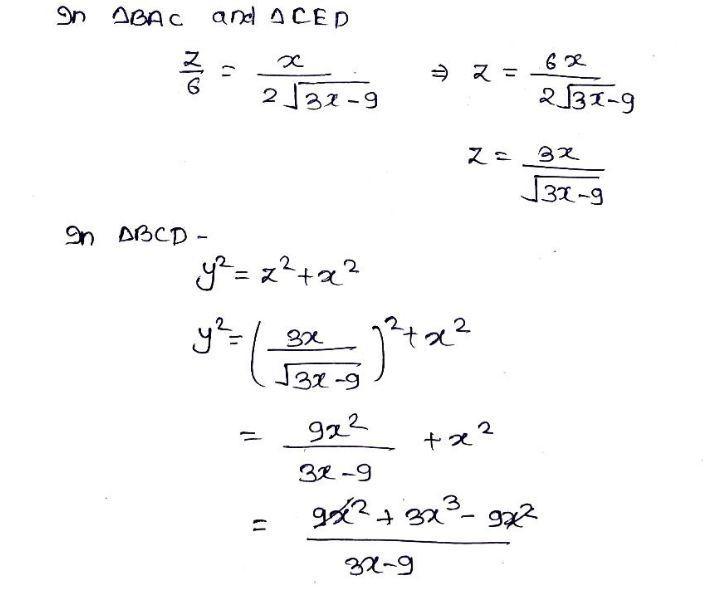 In ΔBAC and ΔCED
z/6 = x/(2√(3x-9)) ⇒ z = 6x/(2√(3x-9))
z = 3x/√(3x-9)
In ΔBCD -
y² = z² + x²
y² = (3x/√(3x-9))² + x²
= 9x²/(3x-9) + x²
= (9x² + 3x³ - 9x²)/(3x-9)